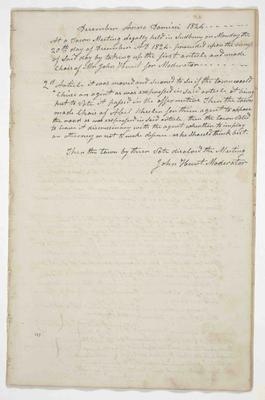 December Anno Domini 1824
At a Town Meeting Legally held in Sudbury on Monday the
20th day of December AD 1824 proceeded upon the
of Said day by taking up the first article and made
Choice of Mr John Hunt for Moderator
2d Article it was moved and second to see if the town would
Chuse an agent as was expressed in said article it being
put to Vote it passed in the affirmative Then the town
made Choice of Abel Wheeler for their agent to
the road as was expressed in said article, then the town Voted
to leave it discressionary with the agent whether to imploy
an attorney or not to make defence as he should think best
Then the town by their Vote disolved the Meeting
John Hunt Moderator